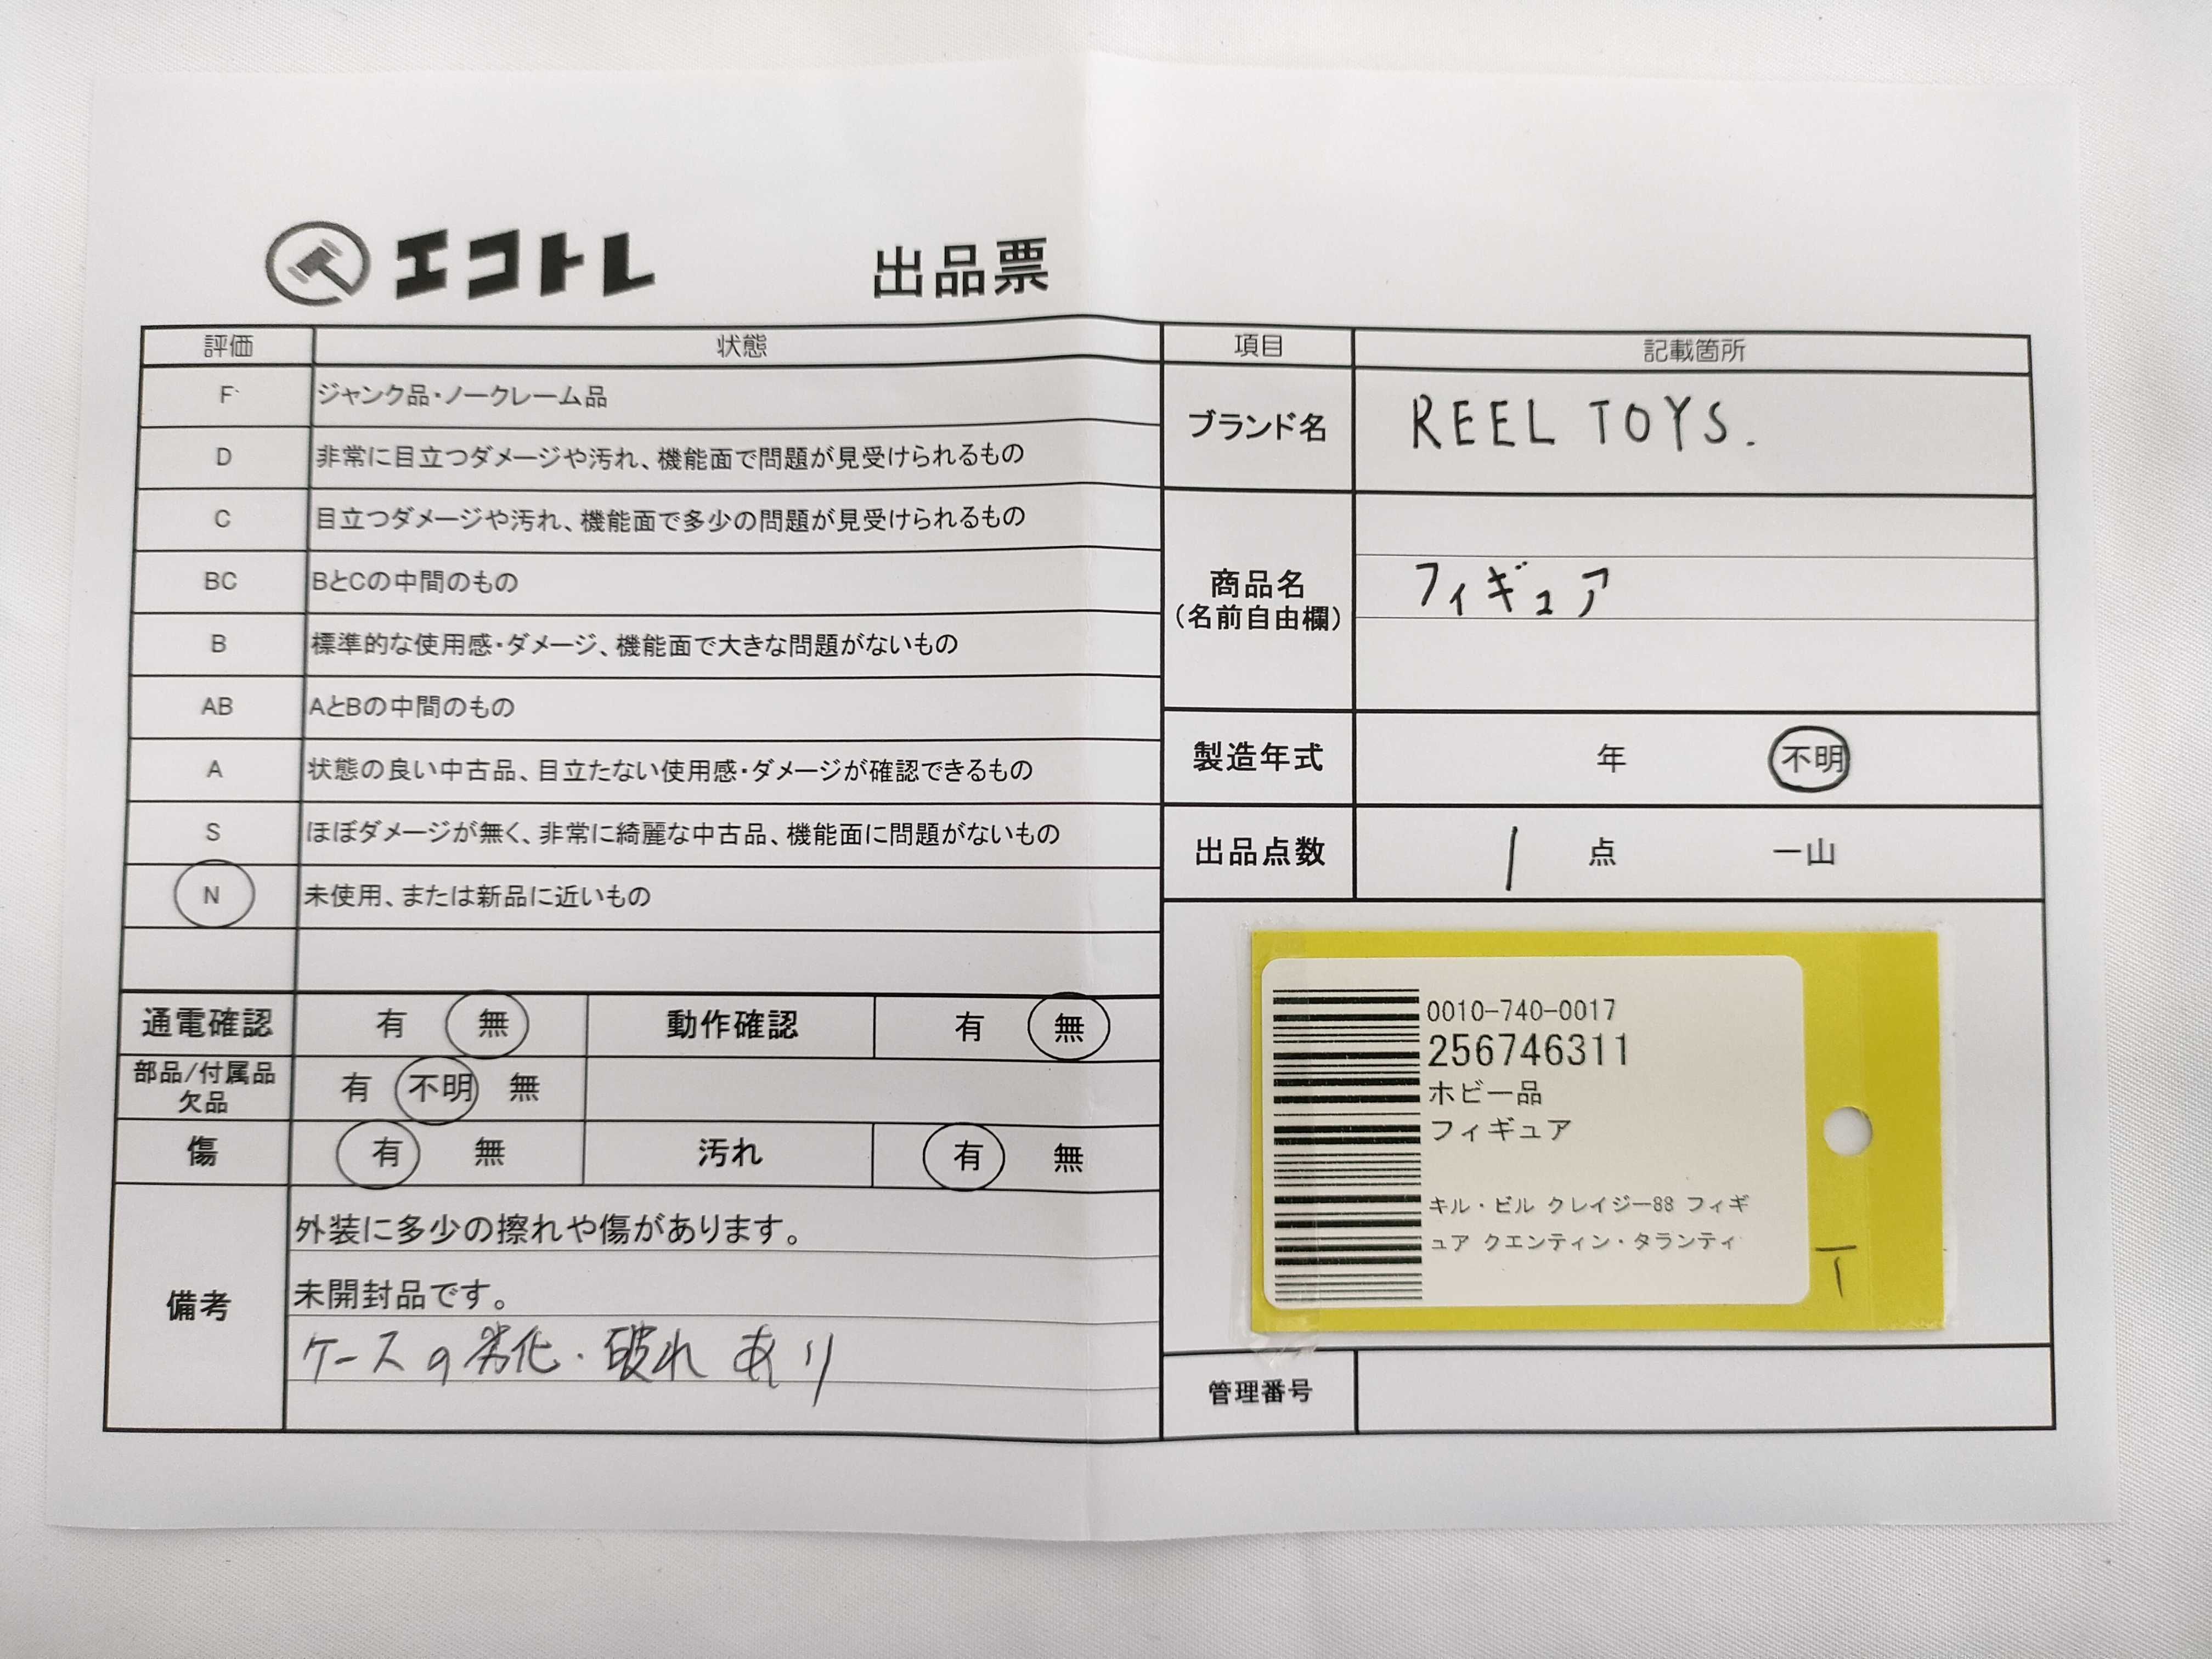 エコトレ 出品票
評価 状態
F ジャンク品・ノークレーム品
D 非常に目立つダメージや汚れ、機能面で問題が見受けられるもの
C 目立つダメージや汚れ、機能面で多少の問題が見受けられるもの
BC BとCの中間のもの
B 標準的な使用感・ダメージ、機能面で大きな問題がないもの
AB AとBの中間のもの
A 状態の良い中古品、目立たない使用感・ダメージが確認できるもの
S ほぼダメージが無く、非常に綺麗な中古品、機能面に問題がないもの
N 未使用、または新品に近いもの
通電確認 有 無 動作確認 有 無
部品/付属品
欠品 有 不明 無
傷 有 無 汚れ 有 無
備考
外装に多少の擦れや傷があります。
未開封品です。
ケースの劣化・破れあり
項目 記載箇所
ブランド名 REEL TOYS.
商品名
(名前自由欄)
フィギュア
製造年式 年 不明
出品点数 1 点 一山
0010-740-0017
256746311
ホビー品
フィギュア
キル・ビル クレイジー88 フィギ
ュア クエンティン・タランティ
T
管理番号